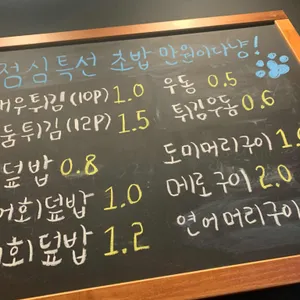 점심특선 초밥 만원이다냥!
새우튀김(10P) 1.0
모둠튀김(12P) 1.5
덮밥 0.8
회덮밥 1.0
회덮밥 1.2
우동 0.5
튀김우동 0.6
도미머리구이
메로구이 2.0
연어머리구이